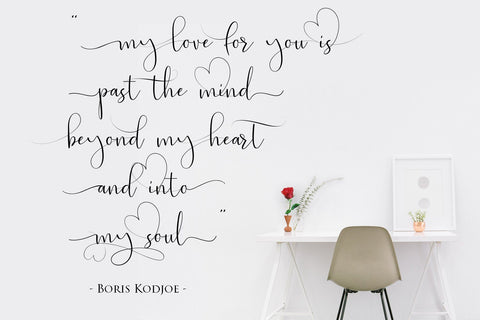 “ my love for you is
past the mind
beyond my heart
and into
my soul ”
- Boris Kodjoe -